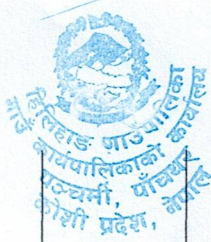 हिलिहाङ गाउँपालिका
गाउँ कार्यपालिकाको कार्यालय
पञ्चमी, पाँचथर
कोशी प्रदेश, नेपाल